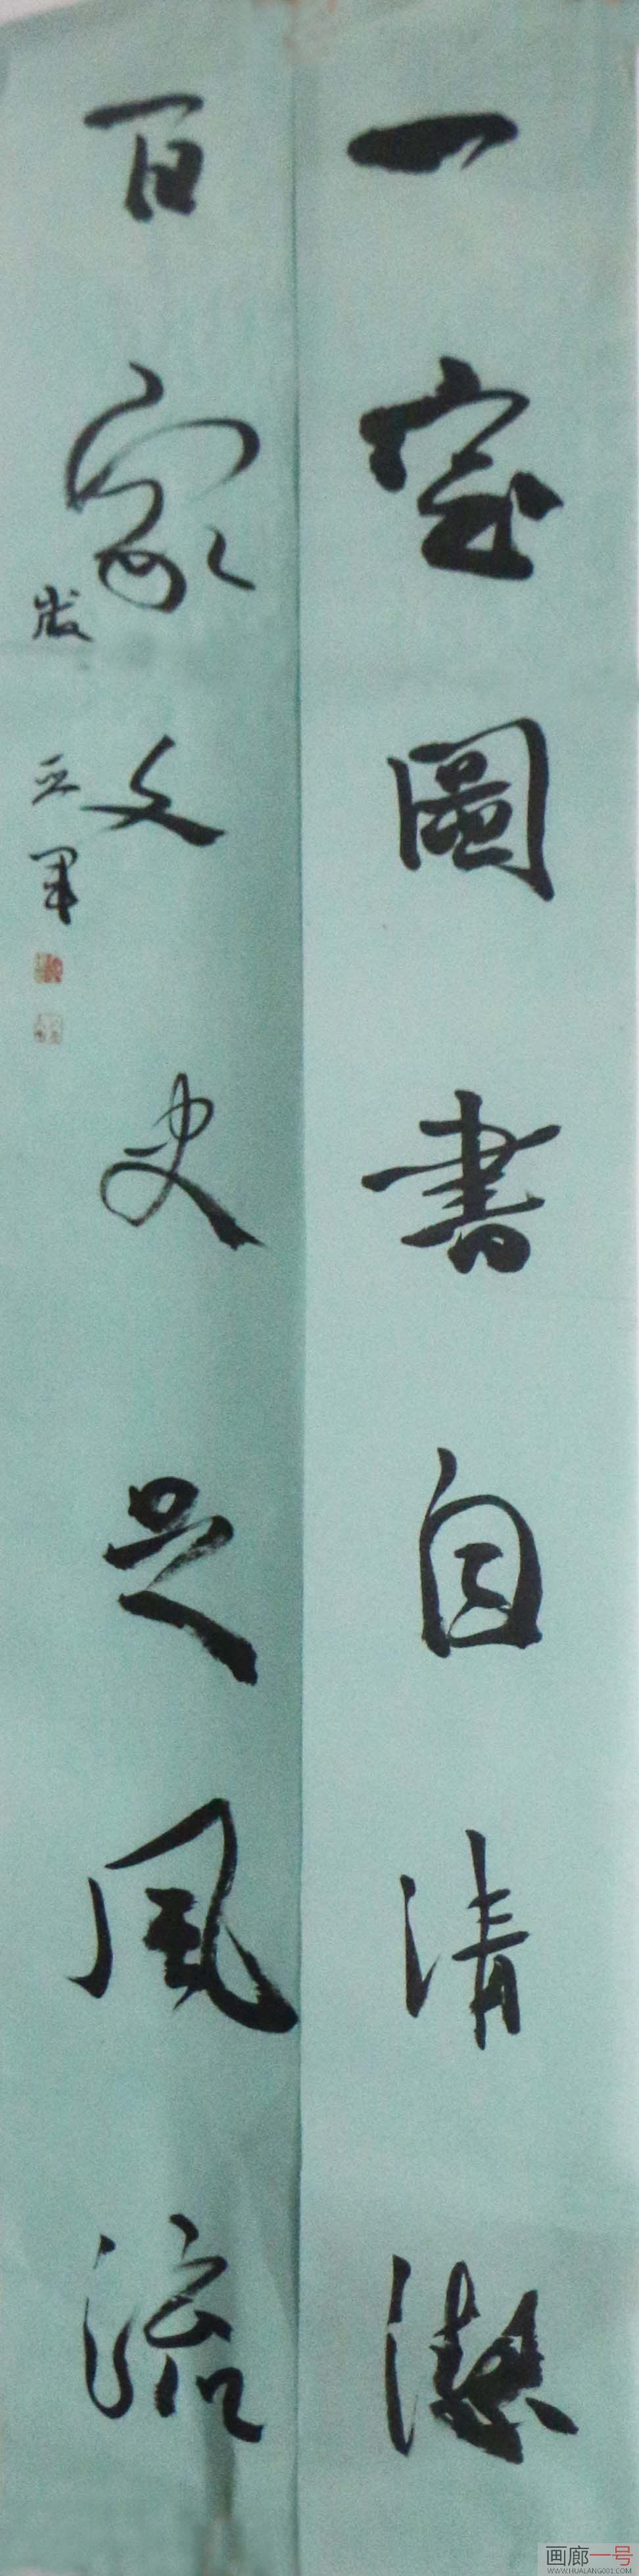 一室圖書自清潔
百家文史足風流
亞軍
画廊一号
WWW.HUALANG001.COM